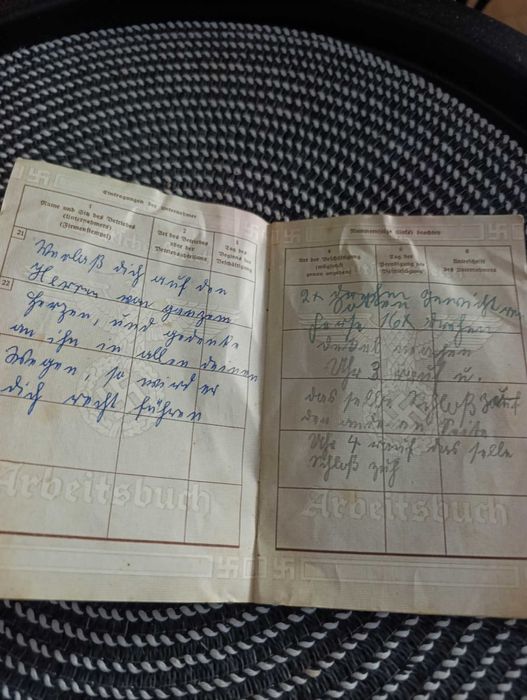 Eintragungen der Unternehmer
1
Name und Sitz des Betriebes
(Unternehmers)
(Firmenstempel)
2
Art des Betriebes
oder der
Betriebsabteilung
3
Tag des
Beginns der
Beschäftigung
21
Verlaß dich auf den
22
Herrn von ganzem
Herzen, und gedenke
an ihn in allen deinen
Wegen, so wird er
dich recht führen
Arbeitsbuch
4
Art der Beschäftigung
(möglichst
genau angeben)
5
Tag der
Beendigung der
Beschäftigung
6
Unterschrift
des Unternehmers
2x Gewicht
16x drehen
machen
Uhr 3 rauf u.
das selbe Schloß zu auf
den anderen Seite
Uhr 4 rauf das selbe
Schloß zuh
Arbeitsbuch